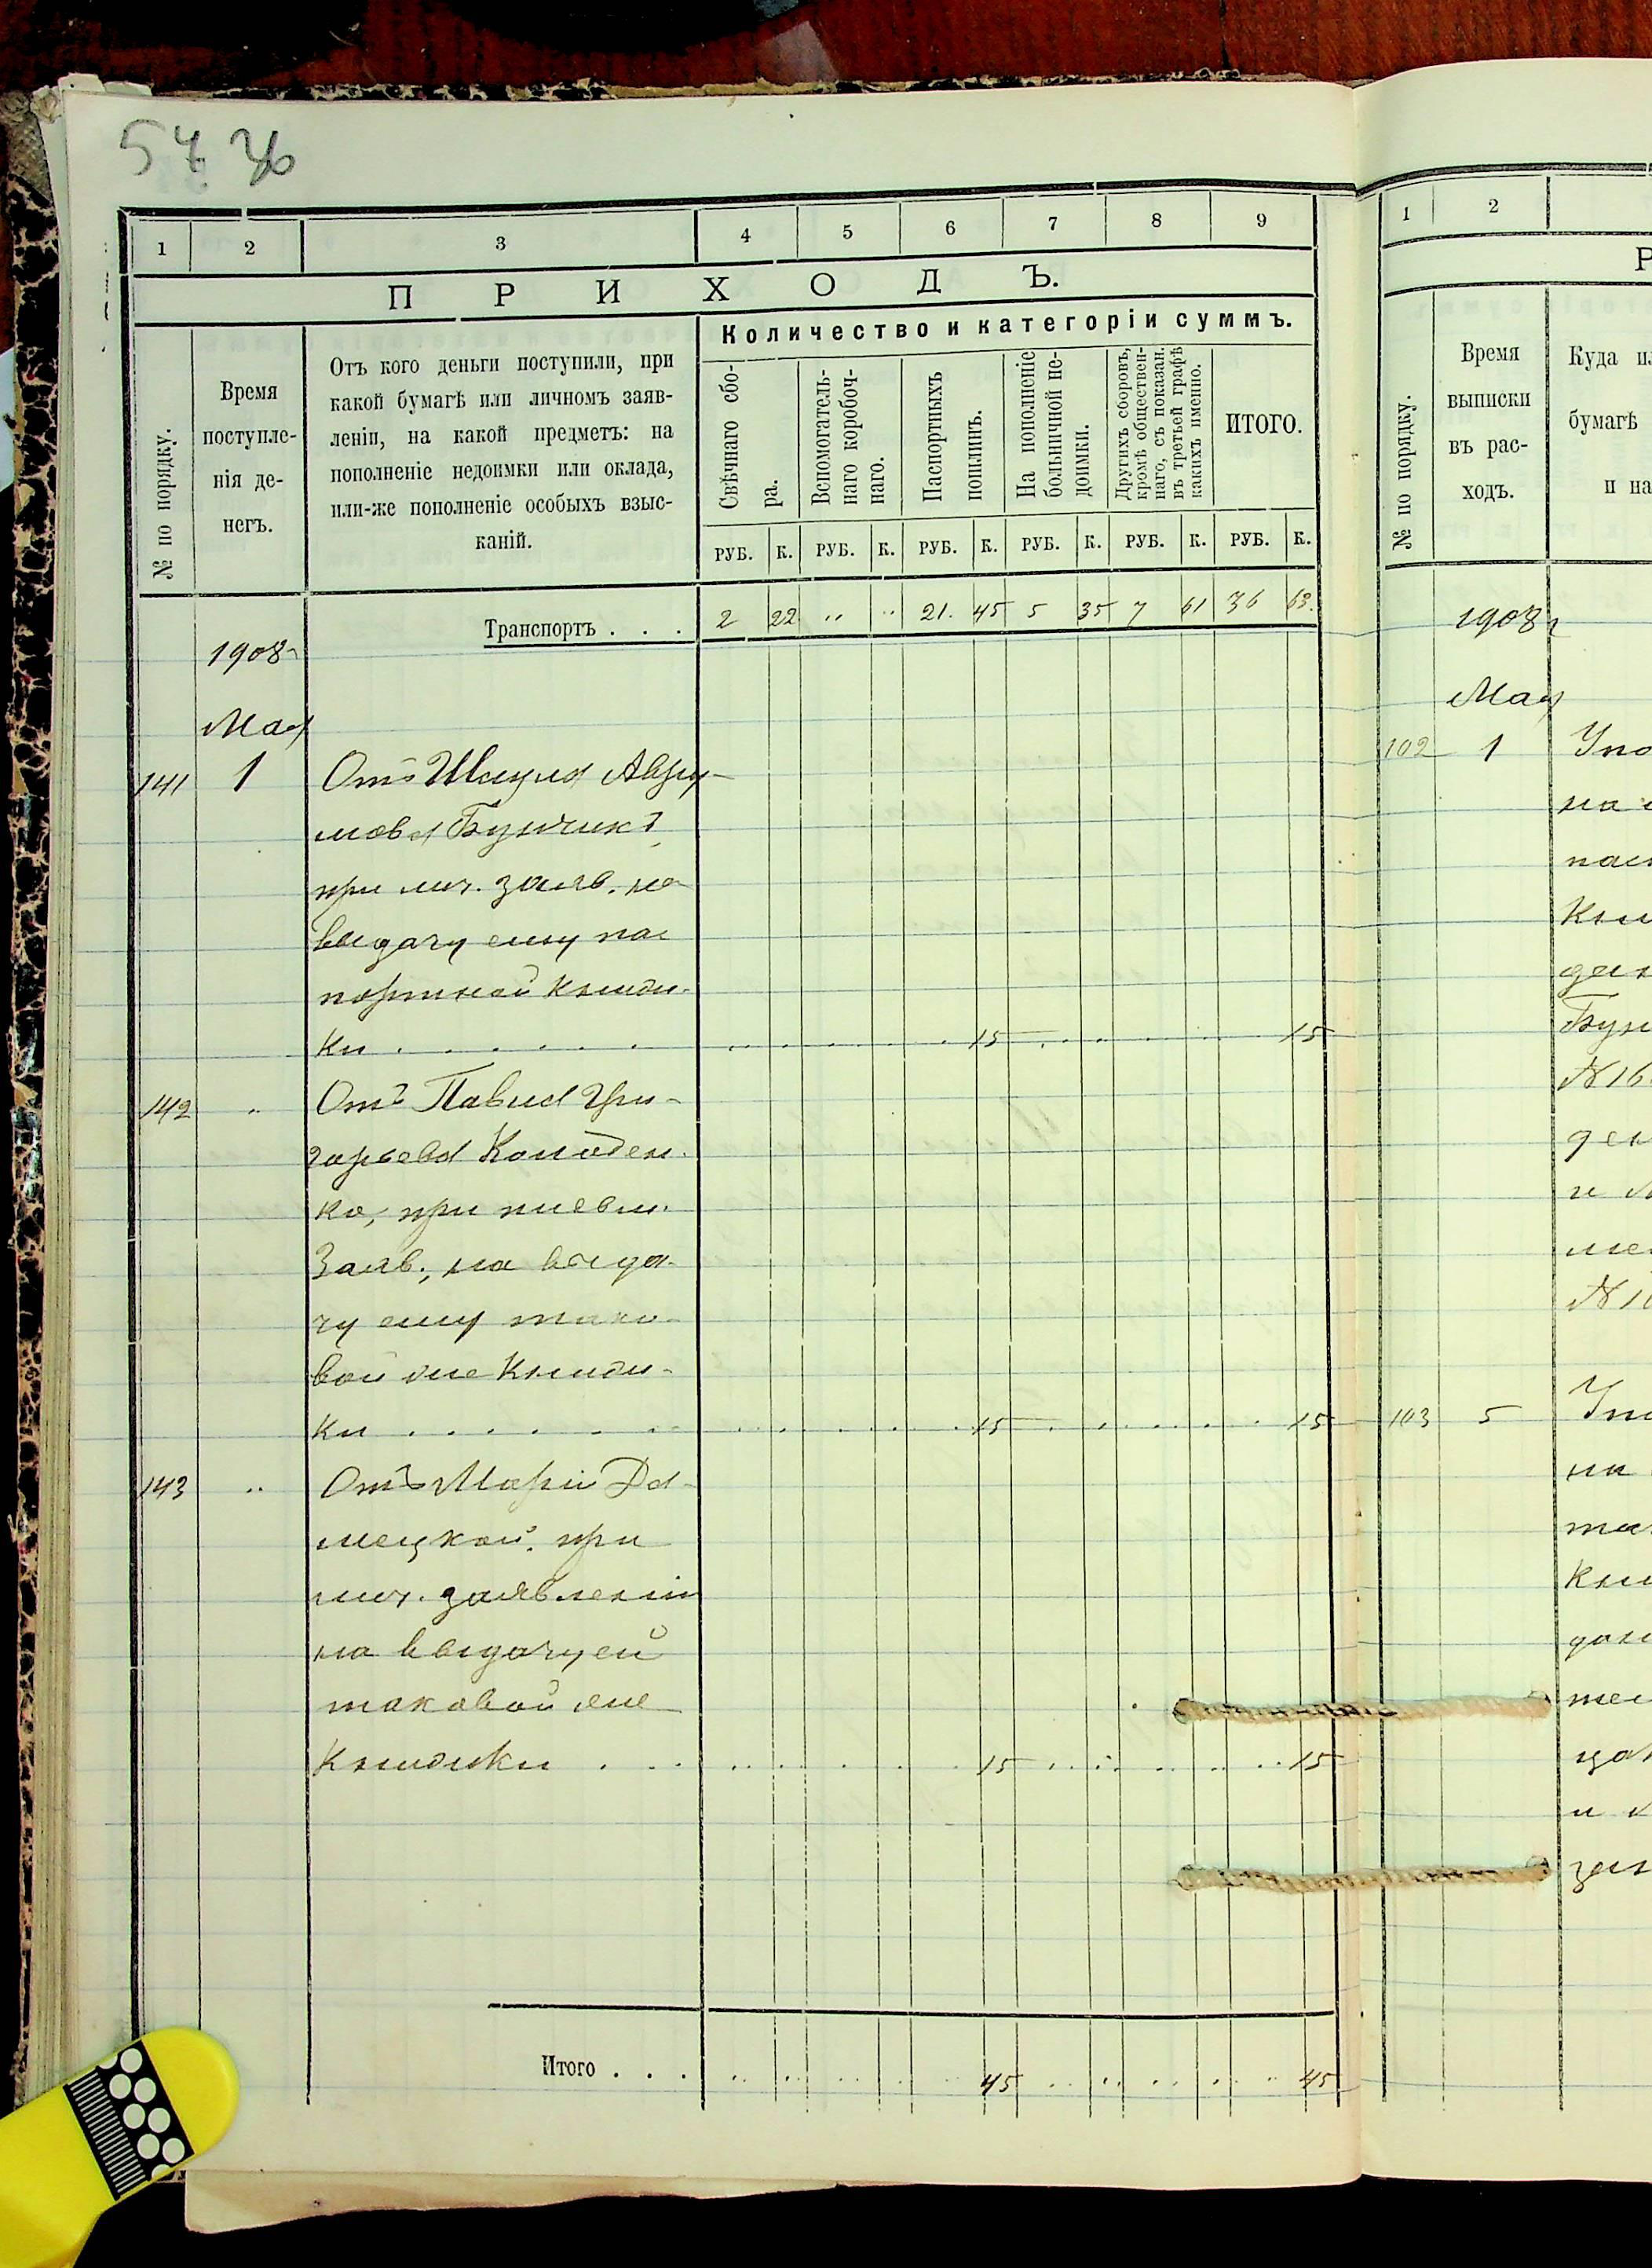 57 36
1 2 3 4 5 6 7 8 9
ПРИХОДЪ.
№ по порядку.
Время
поступле-
нія де-
негъ.
Отъ кого деньги поступили, при
какой бумагѣ или личномъ заяв-
леніи, на какой предметъ: на
пополненіе недоимки или оклада,
или-же пополненіе особыхъ взыс-
каній.
Количество и категоріи суммъ.
Свѣчнаго сбо-
ра.
Вспомогатель-
наго коробоч-
наго.
Паспортныхъ
пошлинъ.
На пополненіе
больничной не-
доимки.
Другихъ сборовъ,
кромѣ обществен-
наго, съ показан.
въ третьей графѣ
какихъ именно.
ИТОГО.
РУБ. К. РУБ. К. РУБ. К. РУБ. К. РУБ. К. РУБ. К.
Транспортъ . . . 2 22 " " 21. 45 5 35 7 61 36 63.
1908 г
Мая
141 1 Отъ Шмуля Авру-
мова Бунчикъ,
при лич. заяв. на
выдачу ему пас
портной книж-
ки . . . . . . 15 . . . 15
142 " Отъ Павла Гри-
горьева
ко, при письм.
Заяв., на выда-
чу ему тако-
вой же книж-
ки . . . . . . 15 . . . 15
143 " Отъ Маріи До-
мецкой, при
лич. заявленіи
на выдачу ей
таковой же
книжки . . . 15 . . . 15
Итого . . . 45 . . . 45
1 2
Р
№ по порядку.
Время
выписки
въ рас-
ходъ.
Куда и
бумагѣ
и на
1908 г
Мая
102 1 Упо
на
пас
Кни
дан
Бун
№ 16
ден
и
№ 1
103 5
на
Кни
и